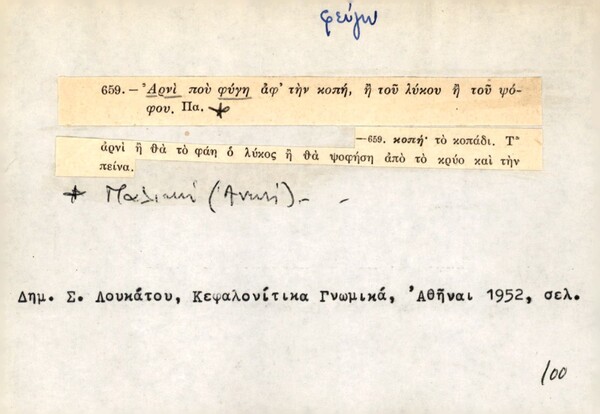 φεύγω
659. — Ἀρνὶ ποὺ φύγη ἀφ' τὴν κοπή, ἢ τοῦ λύκου ἢ τοῦ ψό-
φου. Πα.
—659. κοπή· τὸ κοπάδι. Τ'
ἀρνὶ ἢ θὰ τὸ φάη ὁ λύκος ἢ θὰ ψοφήση ἀπὸ τὸ κρύο καὶ τὴν
πείνα.
Παλικὴ (Ἀνωγή).-
Δημ. Σ. Λουκάτου, Κεφαλονίτικα Γνωμικά, Ἀθῆναι 1952, σελ.
100